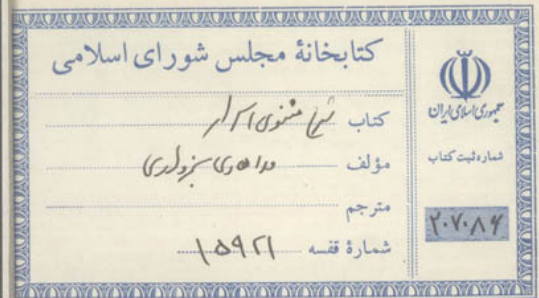 کتابخانهٔ مجلس شورای اسلامی
کتاب شرح مثنوی اسرار
مؤلف ملا هادی سبزواری
مترجم
شمارهٔ قفسه ۱۰۵۹۲۱
جمهوری اسلامی ایران
شماره ثبت کتاب
۲۰۷۰۸۴